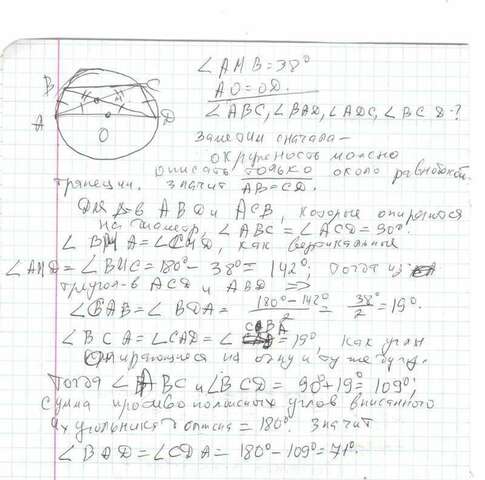 ∠AMB = 38°
AO = OD.
∠ABC, ∠BAD, ∠ADC, ∠BCD - ?
B C
M
A D
O
Заметим сначала -
окружность можно
описать только около равнобокой
трапеции. Значит AB = CD.
Для Δ-в ABD и ACD, которые опираются
на диаметр, ∠ABC = ∠ACD = 90°.
∠BMA = ∠CMD, как вертикальные
∠AMD = ∠BMC = 180° - 38° = 142°; тогда из
треугол-в ACD и ABD ⇒
∠CAB = ∠BDA = 180° - 142° / 2 = 38° / 2 = 19°.
∠BCA = ∠CAD = ∠CBD = 19°, как углы
опирающиеся на одну и ту же дугу.
Тогда ∠ABC и ∠BCD = 90° + 19° = 109°;
Сумма противоположных углов вписанного
4х угольника = 180°. Значит
∠BAD = ∠CDA = 180° - 109° = 71°.